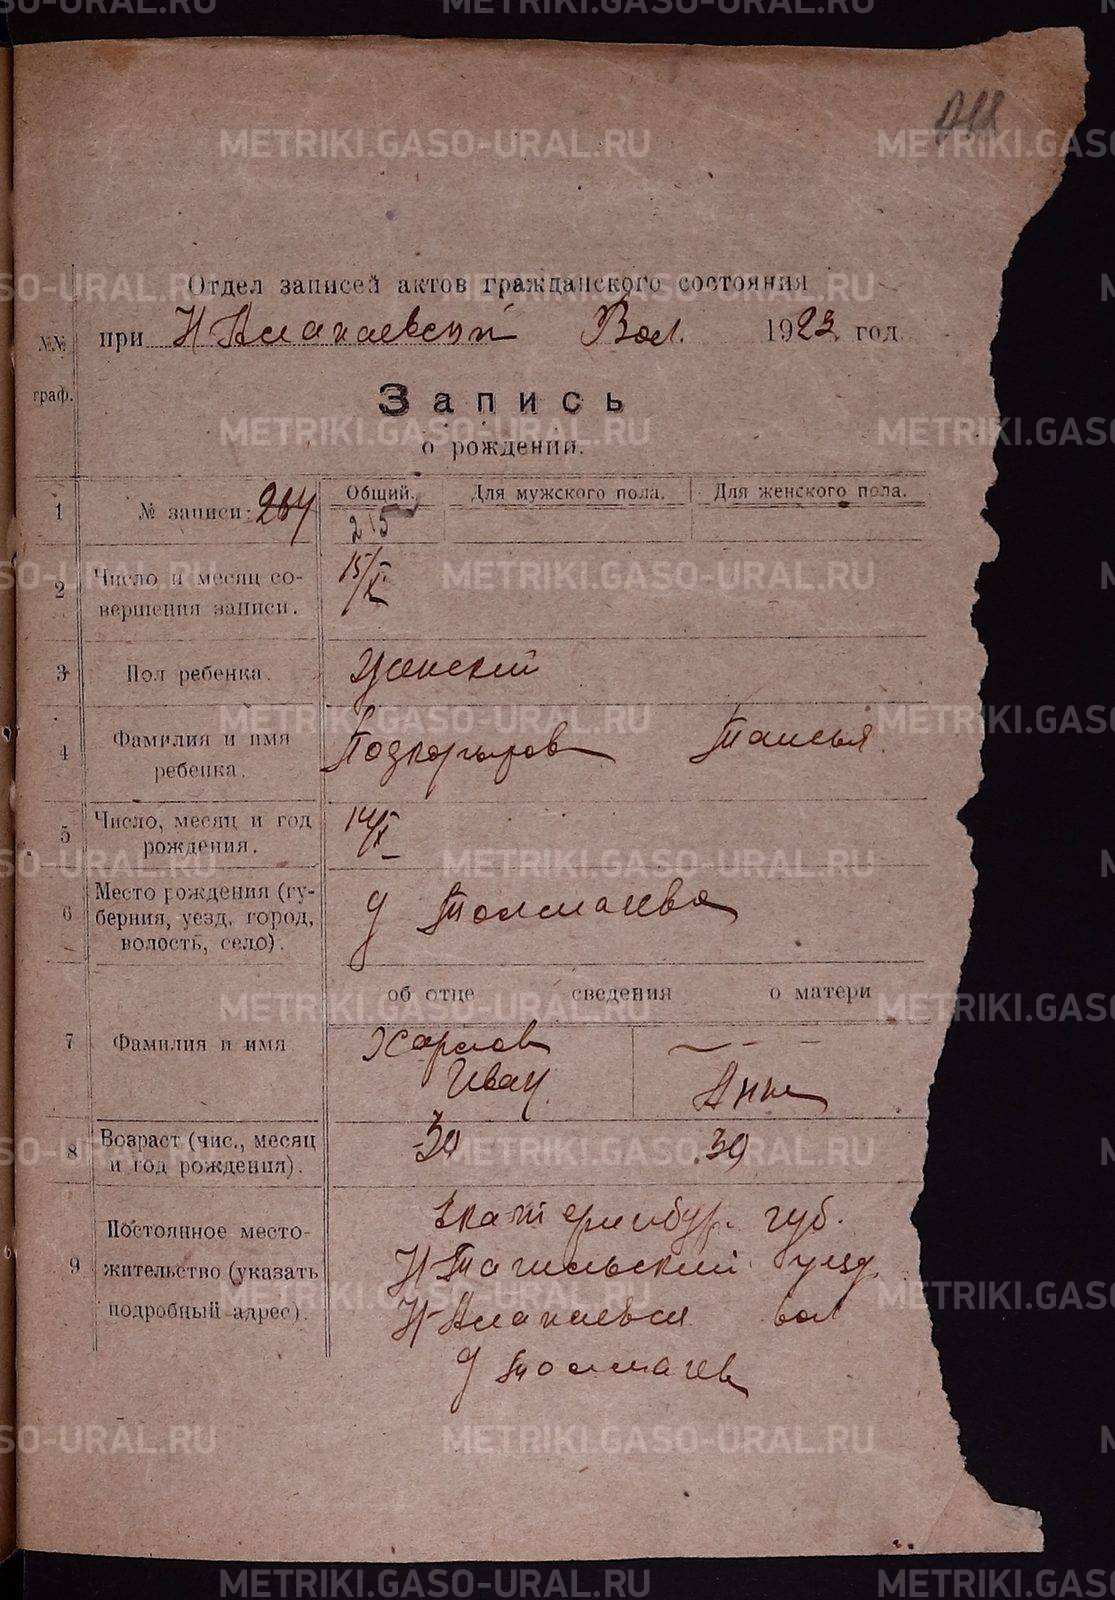 Отдел записей актов гражданского состояния
№№ граф.
при Н Алапаевской Вол. 1923 год.
Запись
о рождении.
Общий. Для мужского пола. Для женского пола.
1 № записи 264 215
2 Число и месяц со-
вершения записи. 15/X
3 Пол ребенка. женский
4 Фамилия и имя
ребенка. Подкорытов Таисья
5 Число, месяц и год
рождения. 14/X
6 Место рождения (гу-
берния, уезд, город,
волость, село). д Толмачева
об отце сведения о матери
7 Фамилия и имя Харлов
Иван. Анна
8 Возраст (чис., месяц
и год рождения). 30 30
9 Постоянное место-
жительство (указать
подробный адрес). Екатеринбур. губ.
Н Тагильский уезд
Н-Алапаевская вол
д Толмачев
METRIKI.GASO-URAL.RU